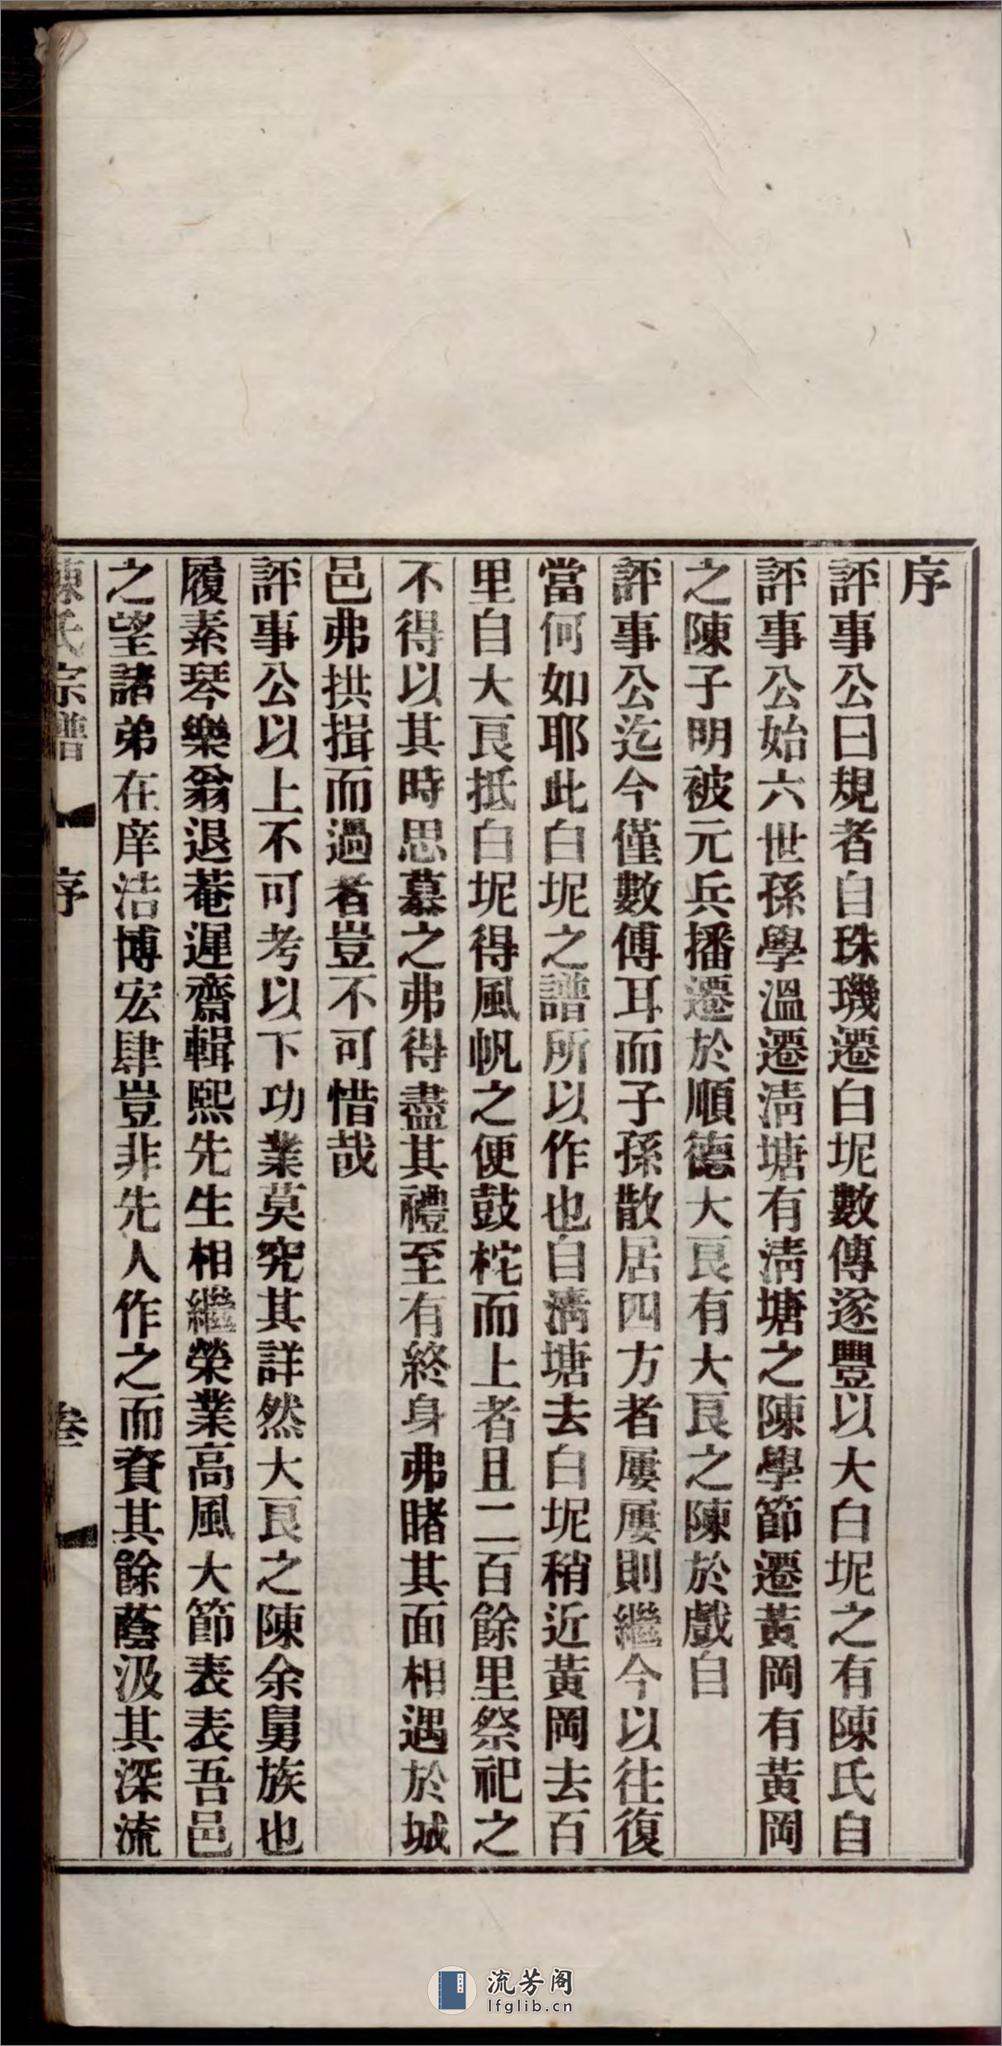 序
評事公曰規者自珠璣遷白坭數傳遂豐以大白坭之有陳氏自
評事公始六世孫學溫遷淸塘有淸塘之陳學節遷黃岡有黃岡
之陳子明被元兵播遷於順德大良有大良之陳於戲自
評事公迄今僅數傳耳而子孫散居四方者屢屢則繼今以往復
當何如耶此白坭之譜所以作也自淸塘去白坭稍近黃岡去百
里自大良抵白坭得風帆之便鼓柁而上者且二百餘里祭祀之
不得以其時思慕之弗得盡其禮至有終身弗睹其面相遇於城
邑弗拱揖而過者豈不可惜哉
評事公以上不可考以下功業莫究其詳然大良之陳余舅族也
履素琴樂翁退菴遲齋輯熙先生相繼榮業高風大節表表吾邑
之望諸弟在庠浩博宏肆豈非先人作之而資其餘蔭汲其深流
陳氏宗譜
序
卷
流芳阁
lfglib.cn